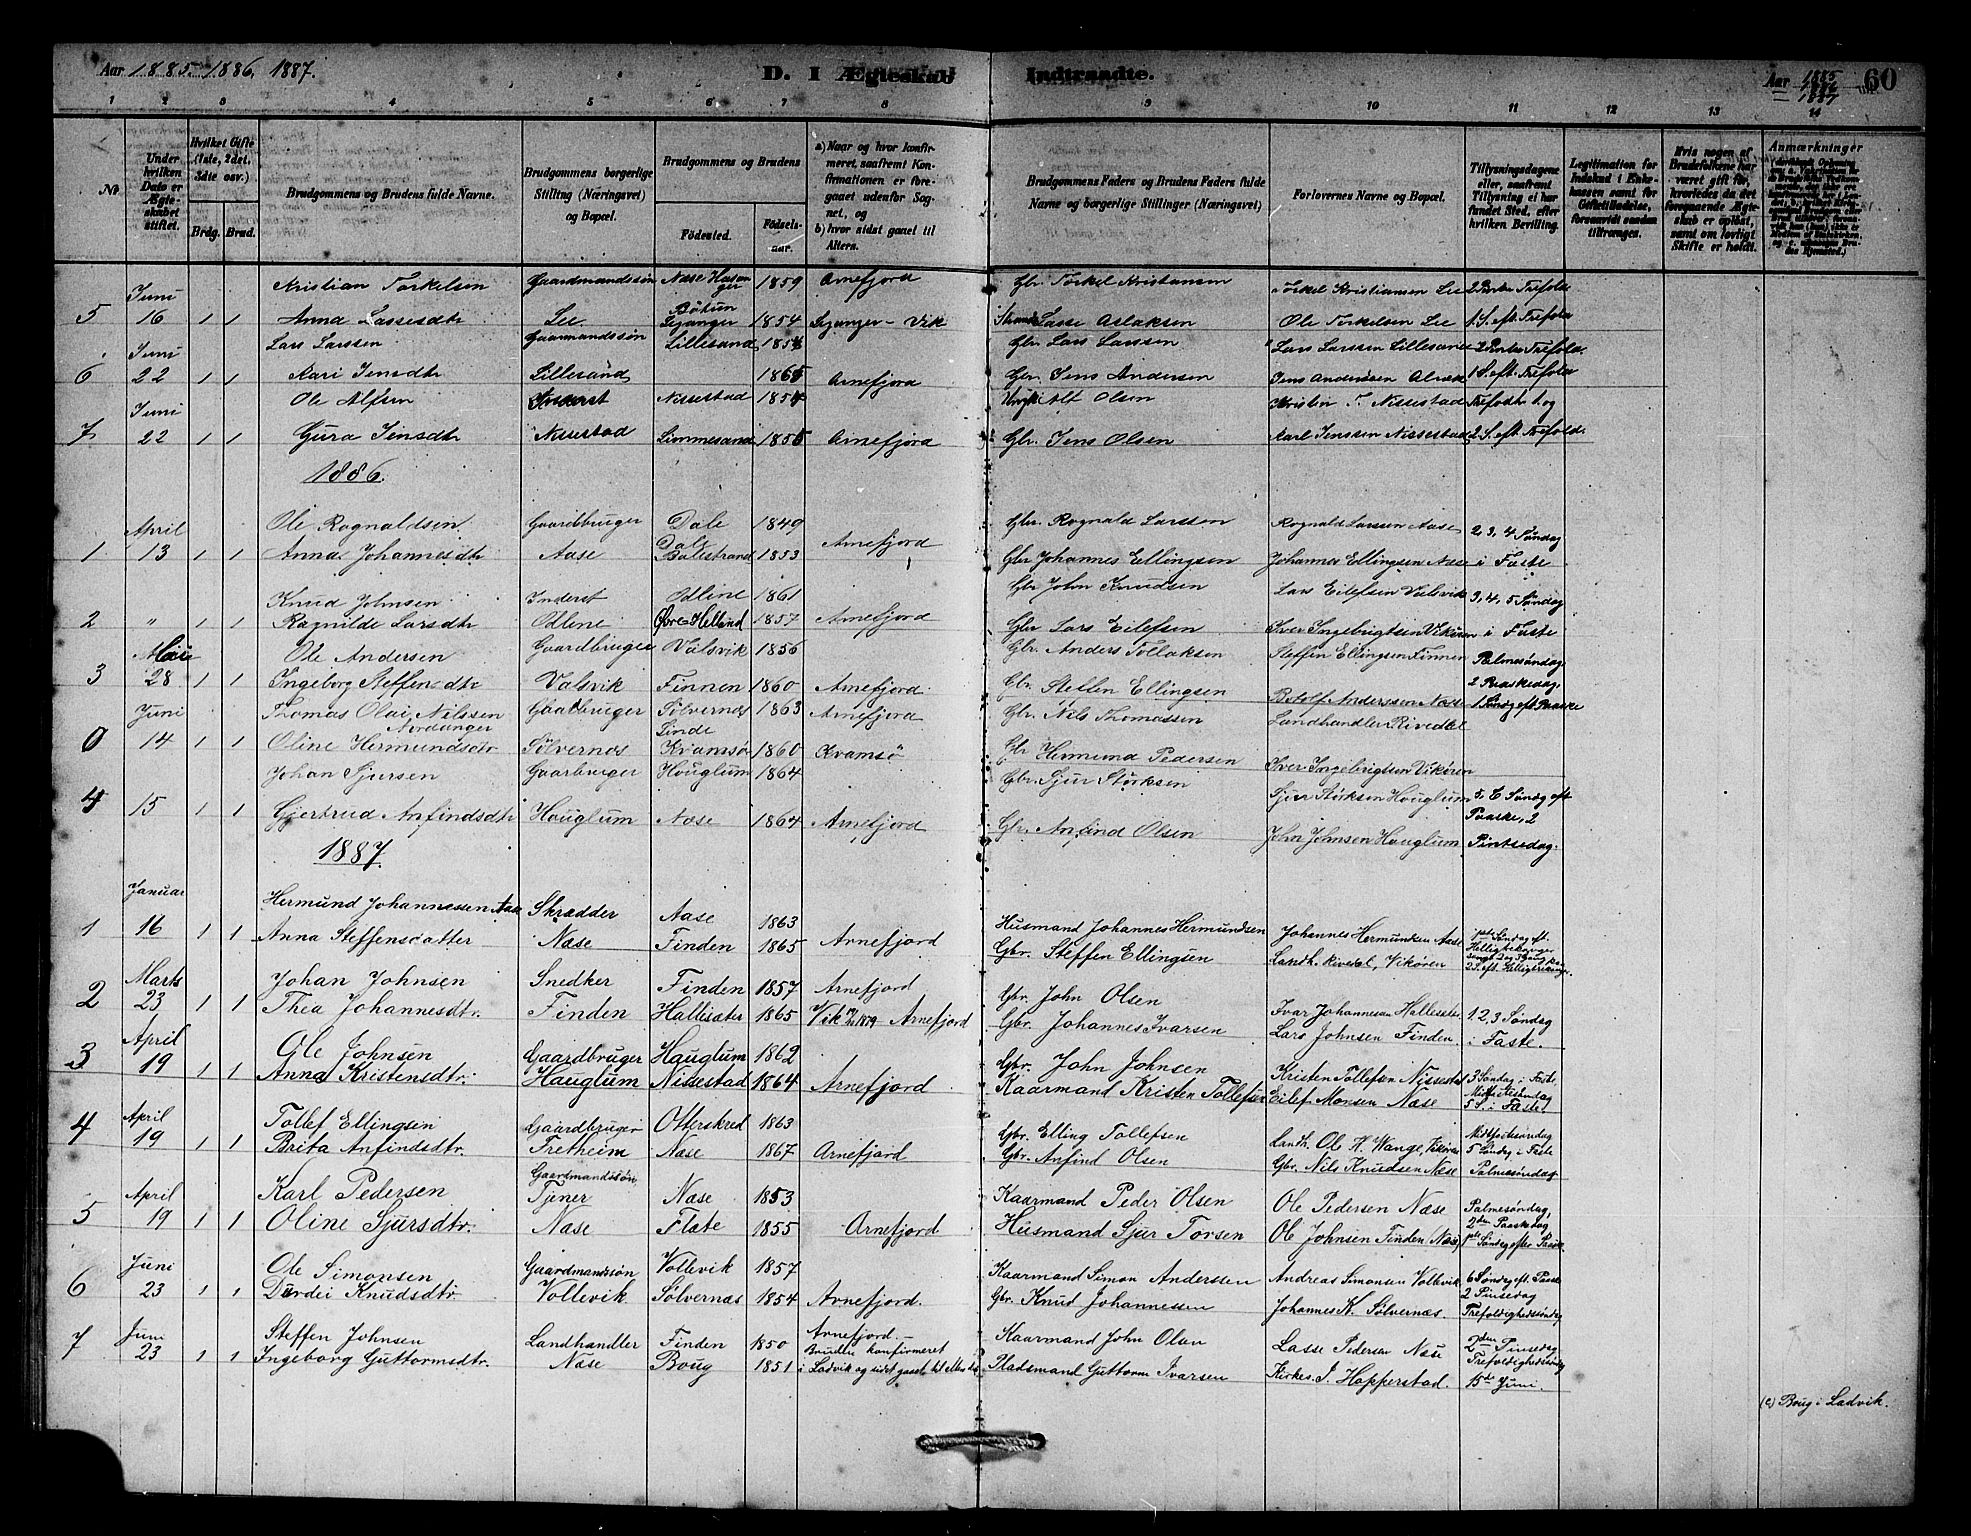 Aar 1885-1886, 1887. D. I Ægteskab Indtraadte. Aar 1885 1886 1887 60
1 2 3 4 5 6 7 8 9 10 11 12 13 14
No
Under hvilken Dato er Ægteskabet stiftet.
Hvilket Gifte (1ste, 2det, 3die osv.)
Brdg. Brud.
Brudgommens og Brudens fulde Navne.
Brudgommens borgerlige Stilling (Næringsvei) og Bopæl.
Brudgommens og Brudens
Fødested. Fødselsaar.
a) Naar og hvor konfirmeret, saafremt Konfirmationen er foregaaet udenfor Sognet, og
b) hvor sidst gaaet til Alters.
Brudgommens Faders og Brudens Faders fulde Navne og borgerlige Stillinger (Næringsvei)
Forlovernes Navne og Bopæl.
Tillysningsdagene eller, saafremt Tillysning ei har fundet Sted, efter hvilken Bevilling.
Legitimation for Indskud i Enkekassen samt for Giftetilladelse, forsaavidt saadan tiltrænges.
Hvis nogen af Brudefolkene har været gift før, hvorledes da det foregaaende Ægteskab er opløst, samt om lovligt Skifte er holdt.
Anmærkninger
Juni Kristian Torkelsen Gaardmandssøn 1859 Arnefjord Gbr. Torkel Kristiansen Torkel Kristiansen Lie
5 16 1 1 Anna Lassesdtr Lie Sjanger 1854 Sjanger - Vik Lasse Aslaksen Ole Torkelsen Lie 1 S. eft. Trefold
Juni Lars Larssen Gaarmandssøn Lillesand Gbr. Lars Larssen Lars Larssen Lillesand
6 22 1 1 Kari Jensdtr Lillesand 1865 Arnefjord Gbr. Jens Andersen Jens Anderssen 1 S. eft. Trefold
Juni Ole Alfsen Inderst Nissestad 1854 Alf Olsen Kristen T. Nissestad Trefoldh. 1. og
7 22 1 1 Gura Jensdtr Nissestad Limmesand 1855 Arnefjord Gbr. Jens Olsen Karl Jenssen Nissestad 2 S. eft. Trefold.
1886.
April Ole Rognaldsen Gaardbruger Dale 1849 Gbr. Rognald Larssen Rognald Larssen Aase 2, 3, 4 Søndag
1 13 1 1 Anna Johannesdtr Aase Dale Balestrand 1853 Arnefjord Gbr Johannes Ellingsen Johannes Ellingsen Næse i Faste
Knud Johnsen Inderst Odline 1861 Gbr John Knudsen Lars Eilefsen Valsvik 3, 4, 5 Søndag
2 " 1 1 Ragnilde Larsdtr Odlene Øvre-Helland 1857 Arnefjord Gbr Lars Eilefsen Iver Ingebrigtsen Vikøren i Faste
Mai Ole Andersen Gaardbruger Valsvik 1856 Gbr. Anders Tollaksen Steffen Ellingsen Finnen Palmesøndag
3 28 1 1 Ingeborg Steffensdtr Valsvik Finnen 1860 Arnefjord. Gbr. Steffen Ellingsen Botolf Anderssen Næse 2 Paaskedag,
Juni Thomas Olai Nilssen Gaarbruger Sølvernes 1863 Arnefjord Gbr. Nils Thomassen Landhandler Rivedal 1 Søndg eft. Paaske
Nordanger Linde
0 14 1 1 Oline Hermundsdtr Sølvernos Kvamsø 1860 Kvamsø Gbr Hermund Pedersen Iver Ingebrigtsen Vikøren
Johan Sjursen Gaarbruger Houglum 1864 Gbr. Sjur Størksen Sjur Størksen Houglum 5, 6 Søndg eft
4 15 1 1 Gjertrud Anfindsdtr Houglum Næse 1864 Arnefjord Gbr. Anfind Olsen John Johnsen Houglum Paaske, 2 Pintsedag.
1887.
Januar Hermund Johannessen Aase Skrædder Aase 1863 Husmand Johannes Hermundsen Johannes Hermundsen Aase 1ste Søndag eft.
1 16 1 1 Anna Steffensdatter Næse Finden 1865 Arnefjord Gbr. Steffen Ellingsen Landh. Rivedal, Vikøren
Marts Johan Johnsen Snedker Finden 1857 Arnefjord Gbr. John Olsen Ivar Johannesen Hallesæter 1, 2, 3 Søndag
2 23 1 1 Thea Johannesdtr. Finden Hallesæter 1865 Vik 1879 Arnefjord Gbr. Johannes Ivarsen Lars Johnsen Finden. i Faste.
April Ole Johnsen Gaardbruger Hauglum 1862 Gbr. John Johnsen Kristen Tollefsen Nissestad 3 Søndag i Faste,
3 19 1 1 Anna Kristensdtr. Hauglum Nissestad 1864 Arnefjord Kaarmand Kristen Tollefsen Eilef Monsen Næse Midfastesøndag 5 S. i Faste
April Tollef Ellingsen Gaardbruger Otterskred 1863 Gbr. Elling Tollefsen Landh. Ole H. Wange, Vikøren Midtfastesøndag
4 19 1 1 Brita Anfindsdtr. Fretheim Næse 1867 Arnefjord Gbr. Anfind Olsen Gbr. Nils Knudsen Næse 5 Søndg. i Faste Palmesøndag
April Karl Pedersen Gaardmandssøn, Tjener Næse 1853 Kaarmand Peder Olsen Ole Pedersen Næse Palmesøndag,
5 19 1 1 Oline Sjursdtr. Næse Flate 1855 Arnefjord Husmand Sjur Torsen Ole Johnsen Finden (Næse) 2den Paaskedag 1ste Søndg efter Paaske
Juni Ole Simonsen Gaardmandssøn Vollevik 1857 Kaarmand Simon Anderssen Andreas Simonsen Vollevik 6 Søndag eft. Paaske
6 23 1 1 Durdei Knudsdtr. Vollevik Sølvernæs 1854 Arnefjord. Gbr. Knud Johannessen Johannes K. Sølvernæs. 2 Pinsedag Trefoldighedssøndag
Juni Steffen Johnsen Landhandler Finden 1850 Arnefjord. - Kaarmand John Olsen Lasse Pedersen Næse 2den Pinsedag
7 23 1 1 Ingeborg Guttormsdtr. Næse Boug 1851 Bruden konfirmeret i Ladvik og sidst gaaet til alters Pladsmand Guttorm Ivarsen Kirkes. J. Hopperstad. Trefoldighedssøndg 15de Juni.
(6) Boug i Ladvik.